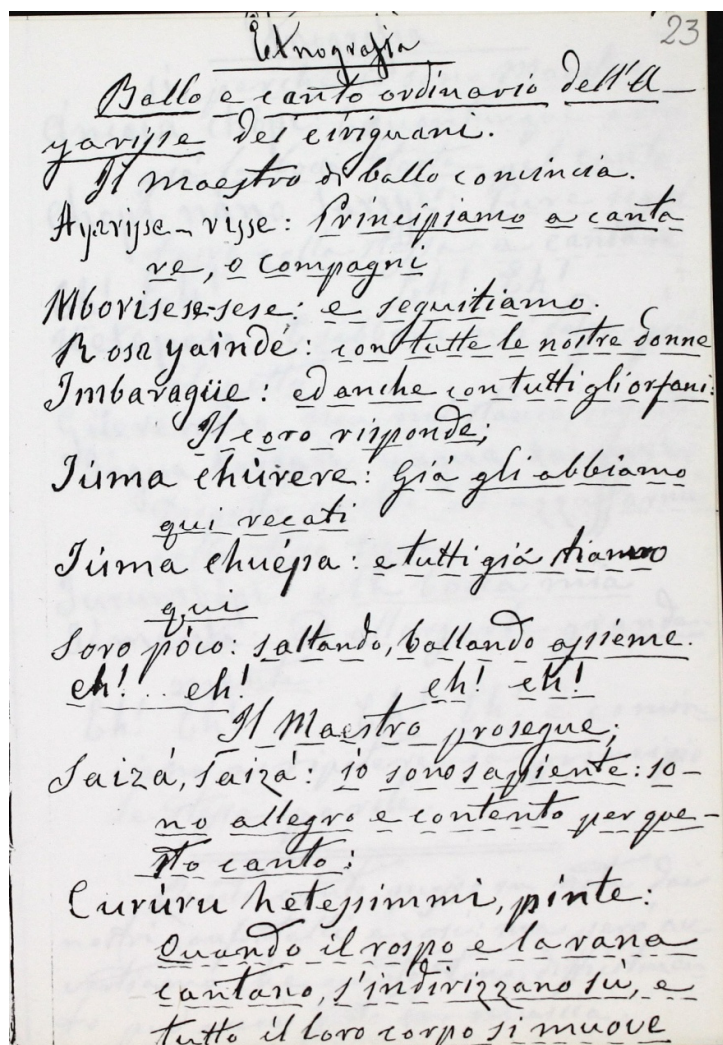 23
Etnografia
Ballo e canto ordinario dell'A-
yarisse dei ciriguani.
Il maestro di ballo comincia.
Ayarisse-risse: Principiamo a canta
re, o compagni
Mborisese-sese: e seguitiamo.
Rosa yaindé: con tutte le nostre donne
Imbaragüe: ed anche con tutti gli orfani:
Il coro risponde;
Túma chúrere: Giá gli abbiamo
qui recati
Túma chuépa: e tutti giá stanno
qui
Soro póco: saltando, ballando assieme.
eh! .. eh! eh! eh!
Il Maestro prosegue;
Saizá, Saizá: io sono sapiente: so-
no allegro e contento per que-
sto canto:
Cururu hetepimmi, pinte:
Quando il rospo e la rana
cantano, s'indirizzano sù, e
tutto il loro corpo si muove